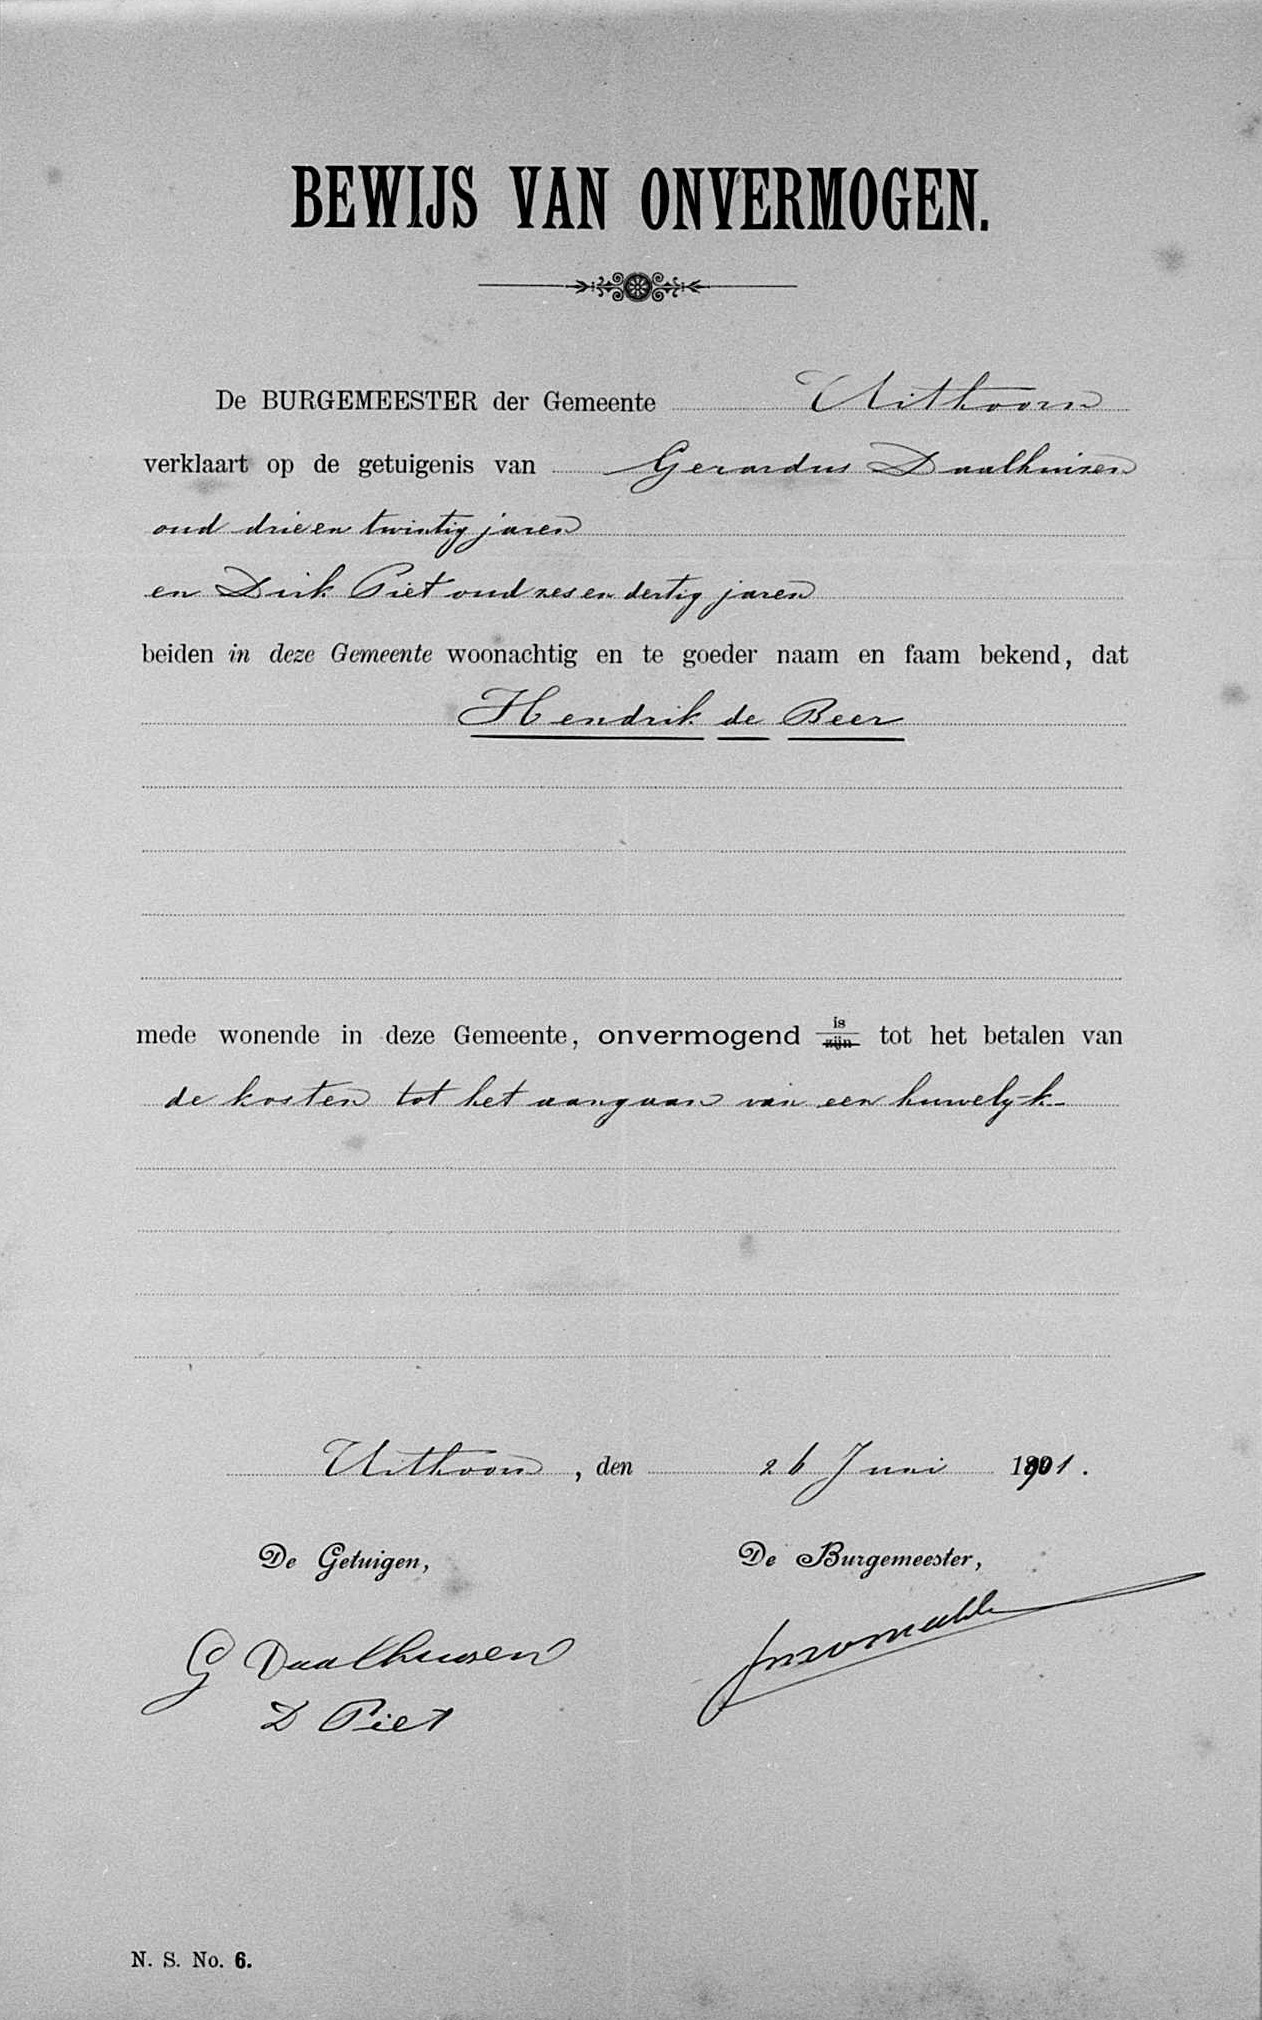 BEWIJS VAN ONVERMOGEN.
De BURGEMEESTER der Gemeente Uithoorn
verklaart op de getuigenis van Gerardus Daalhuisen
oud drieen twintig jaren
en Dirk Piet oud zes en dertig jaren
beiden in deze Gemeente woonachtig en te goeder naam en faam bekend, dat
Hendrik de Beer
mede wonende in deze Gemeente, onvermogend is zijn tot het betalen van
de kosten tot het aangaan van een huwelijk
Uithoorn, den 26 Juni 1901.
De Getuigen, De Burgemeester,
G Daalhuisen
D Piet
N. S. No. 6.